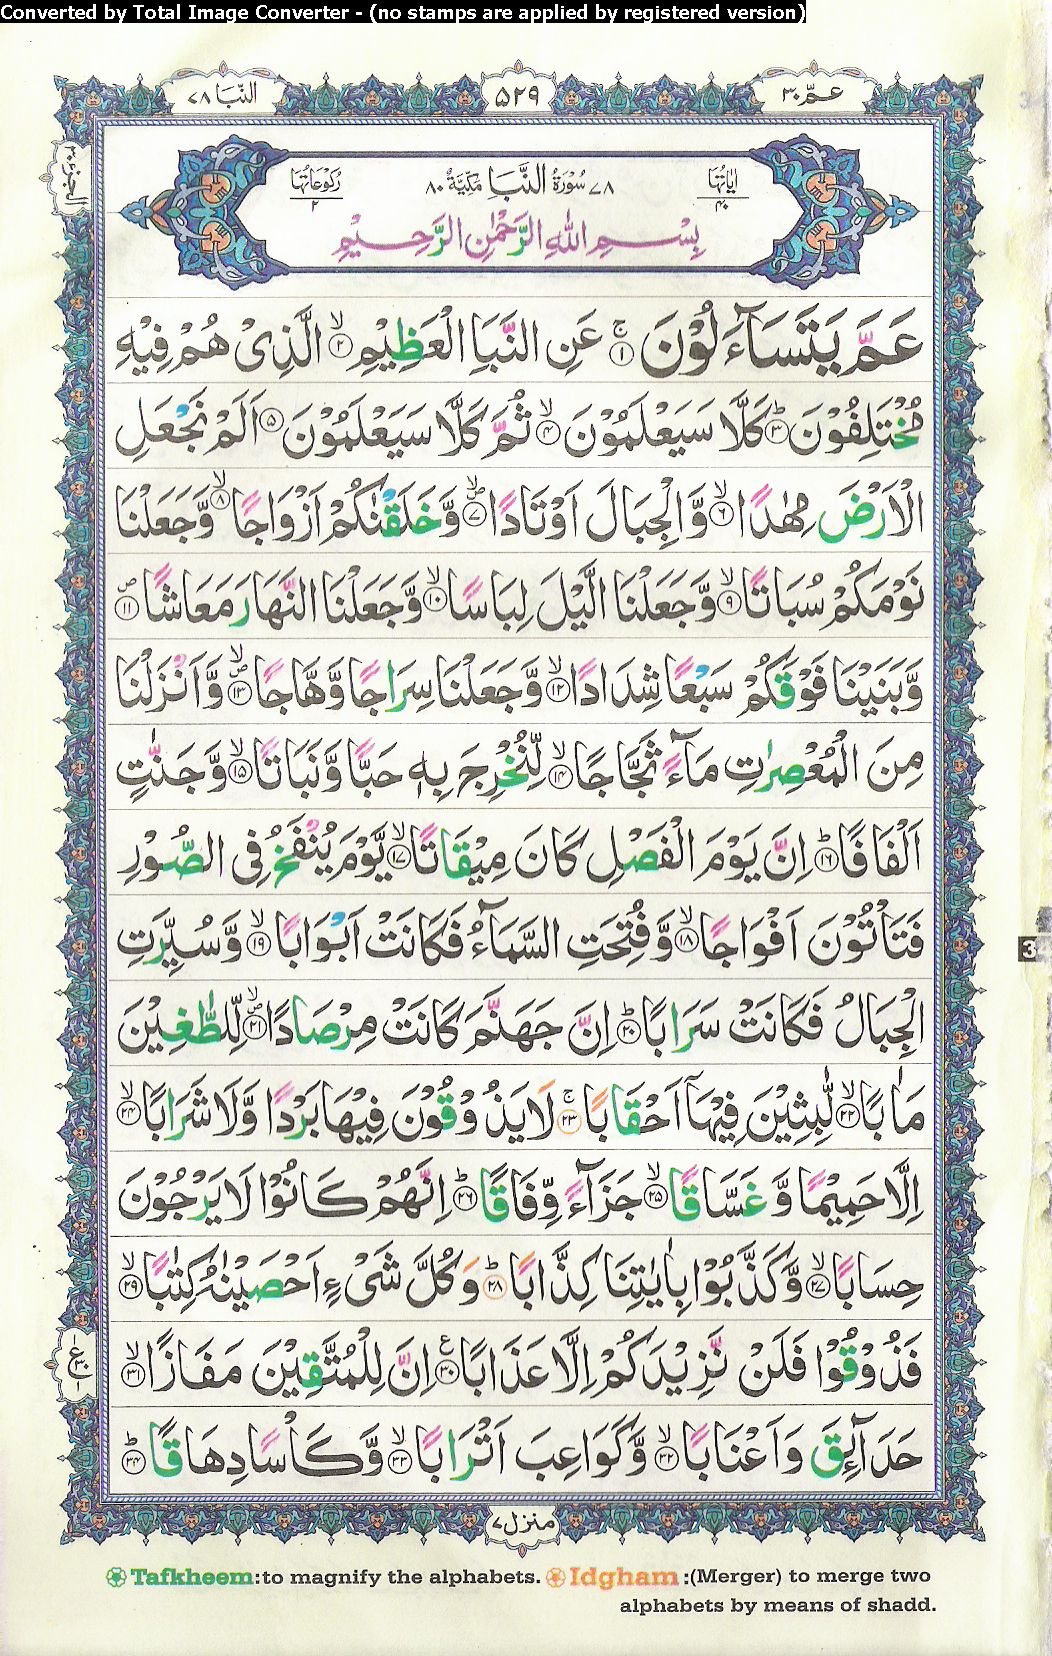 Converted by Total Image Converter - (no stamps are applied by registered version)
عمّ ٣٠
٥٢٩
النّبا ٧٨
الجزء ٣٠
اٰیَاتُهَا ٤٠
٧٨ سُوْرَةُ النَّبَاِ مَكِّیَّةٌ ٨٠
رُكُوْعَاتُهَا ٢
بِسْمِ اللّٰهِ الرَّحْمٰنِ الرَّحِیْمِ
عَمَّ یَتَسَآءَلُوْنَ ۚ۝١ عَنِ النَّبَاِ الْعَظِیْمِ ۙ۝٢ الَّذِیْ هُمْ فِیْهِ
مُخْتَلِفُوْنَ ؕ۝٣ كَلَّا سَیَعْلَمُوْنَ ۙ۝٤ ثُمَّ كَلَّا سَیَعْلَمُوْنَ ۝٥ اَلَمْ نَجْعَلِ
الْاَرْضَ مِهٰدًا ۙ۝٦ وَّالْجِبَالَ اَوْتَادًا ۪ۙ۝٧ وَّخَلَقْنٰكُمْ اَزْوَاجًا ۙ۝٨ وَّجَعَلْنَا
نَوْمَكُمْ سُبَاتًا ۙ۝٩ وَّجَعَلْنَا الَّیْلَ لِبَاسًا ۙ۝١٠ وَّجَعَلْنَا النَّهَارَ مَعَاشًا ۪۝١١
وَّبَنَیْنَا فَوْقَكُمْ سَبْعًا شِدَادًا ۙ۝١٢ وَّجَعَلْنَا سِرَاجًا وَّهَّاجًا ۪ۙ۝١٣ وَّاَنْزَلْنَا
مِنَ الْمُعْصِرٰتِ مَآءً ثَجَّاجًا ۙ۝١٤ لِّنُخْرِجَ بِهٖ حَبًّا وَّنَبَاتًا ۙ۝١٥ وَّجَنّٰتٍ
اَلْفَافًا ؕ۝١٦ اِنَّ یَوْمَ الْفَصْلِ كَانَ مِیْقَاتًا ۙ۝١٧ یَّوْمَ یُنْفَخُ فِی الصُّوْرِ
فَتَاْتُوْنَ اَفْوَاجًا ۙ۝١٨ وَّفُتِحَتِ السَّمَآءُ فَكَانَتْ اَبْوَابًا ۙ۝١٩ وَّسُیِّرَتِ
الْجِبَالُ فَكَانَتْ سَرَابًا ؕ۝٢٠ اِنَّ جَهَنَّمَ كَانَتْ مِرْصَادًا ۪ۙ۝٢١ لِّلطّٰغِیْنَ
مَاٰبًا ۙ۝٢٢ لّٰبِثِیْنَ فِیْهَاۤ اَحْقَابًا ۚ۝٢٣ لَا یَذُوْقُوْنَ فِیْهَا بَرْدًا وَّلَا شَرَابًا ۙ۝٢٤
اِلَّا حَمِیْمًا وَّغَسَّاقًا ۙ۝٢٥ جَزَآءً وِّفَاقًا ؕ۝٢٦ اِنَّهُمْ كَانُوْا لَا یَرْجُوْنَ
حِسَابًا ۙ۝٢٧ وَّكَذَّبُوْا بِاٰیٰتِنَا كِذَّابًا ؕ۝٢٨ وَكُلَّ شَیْءٍ اَحْصَیْنٰهُ كِتٰبًا ۙ۝٢٩
فَذُوْقُوْا فَلَنْ نَّزِیْدَكُمْ اِلَّا عَذَابًا ۝٣٠ۧ اِنَّ لِلْمُتَّقِیْنَ مَفَازًا ۙ۝٣١
حَدَآىِٕقَ وَاَعْنَابًا ۙ۝٣٢ وَّكَوَاعِبَ اَتْرَابًا ۙ۝٣٣ وَّكَاْسًا دِهَاقًا ؕ۝٣٤
منزل ٧
Tafkheem:to magnify the alphabets. Idgham :(Merger) to merge two
alphabets by means of shadd.